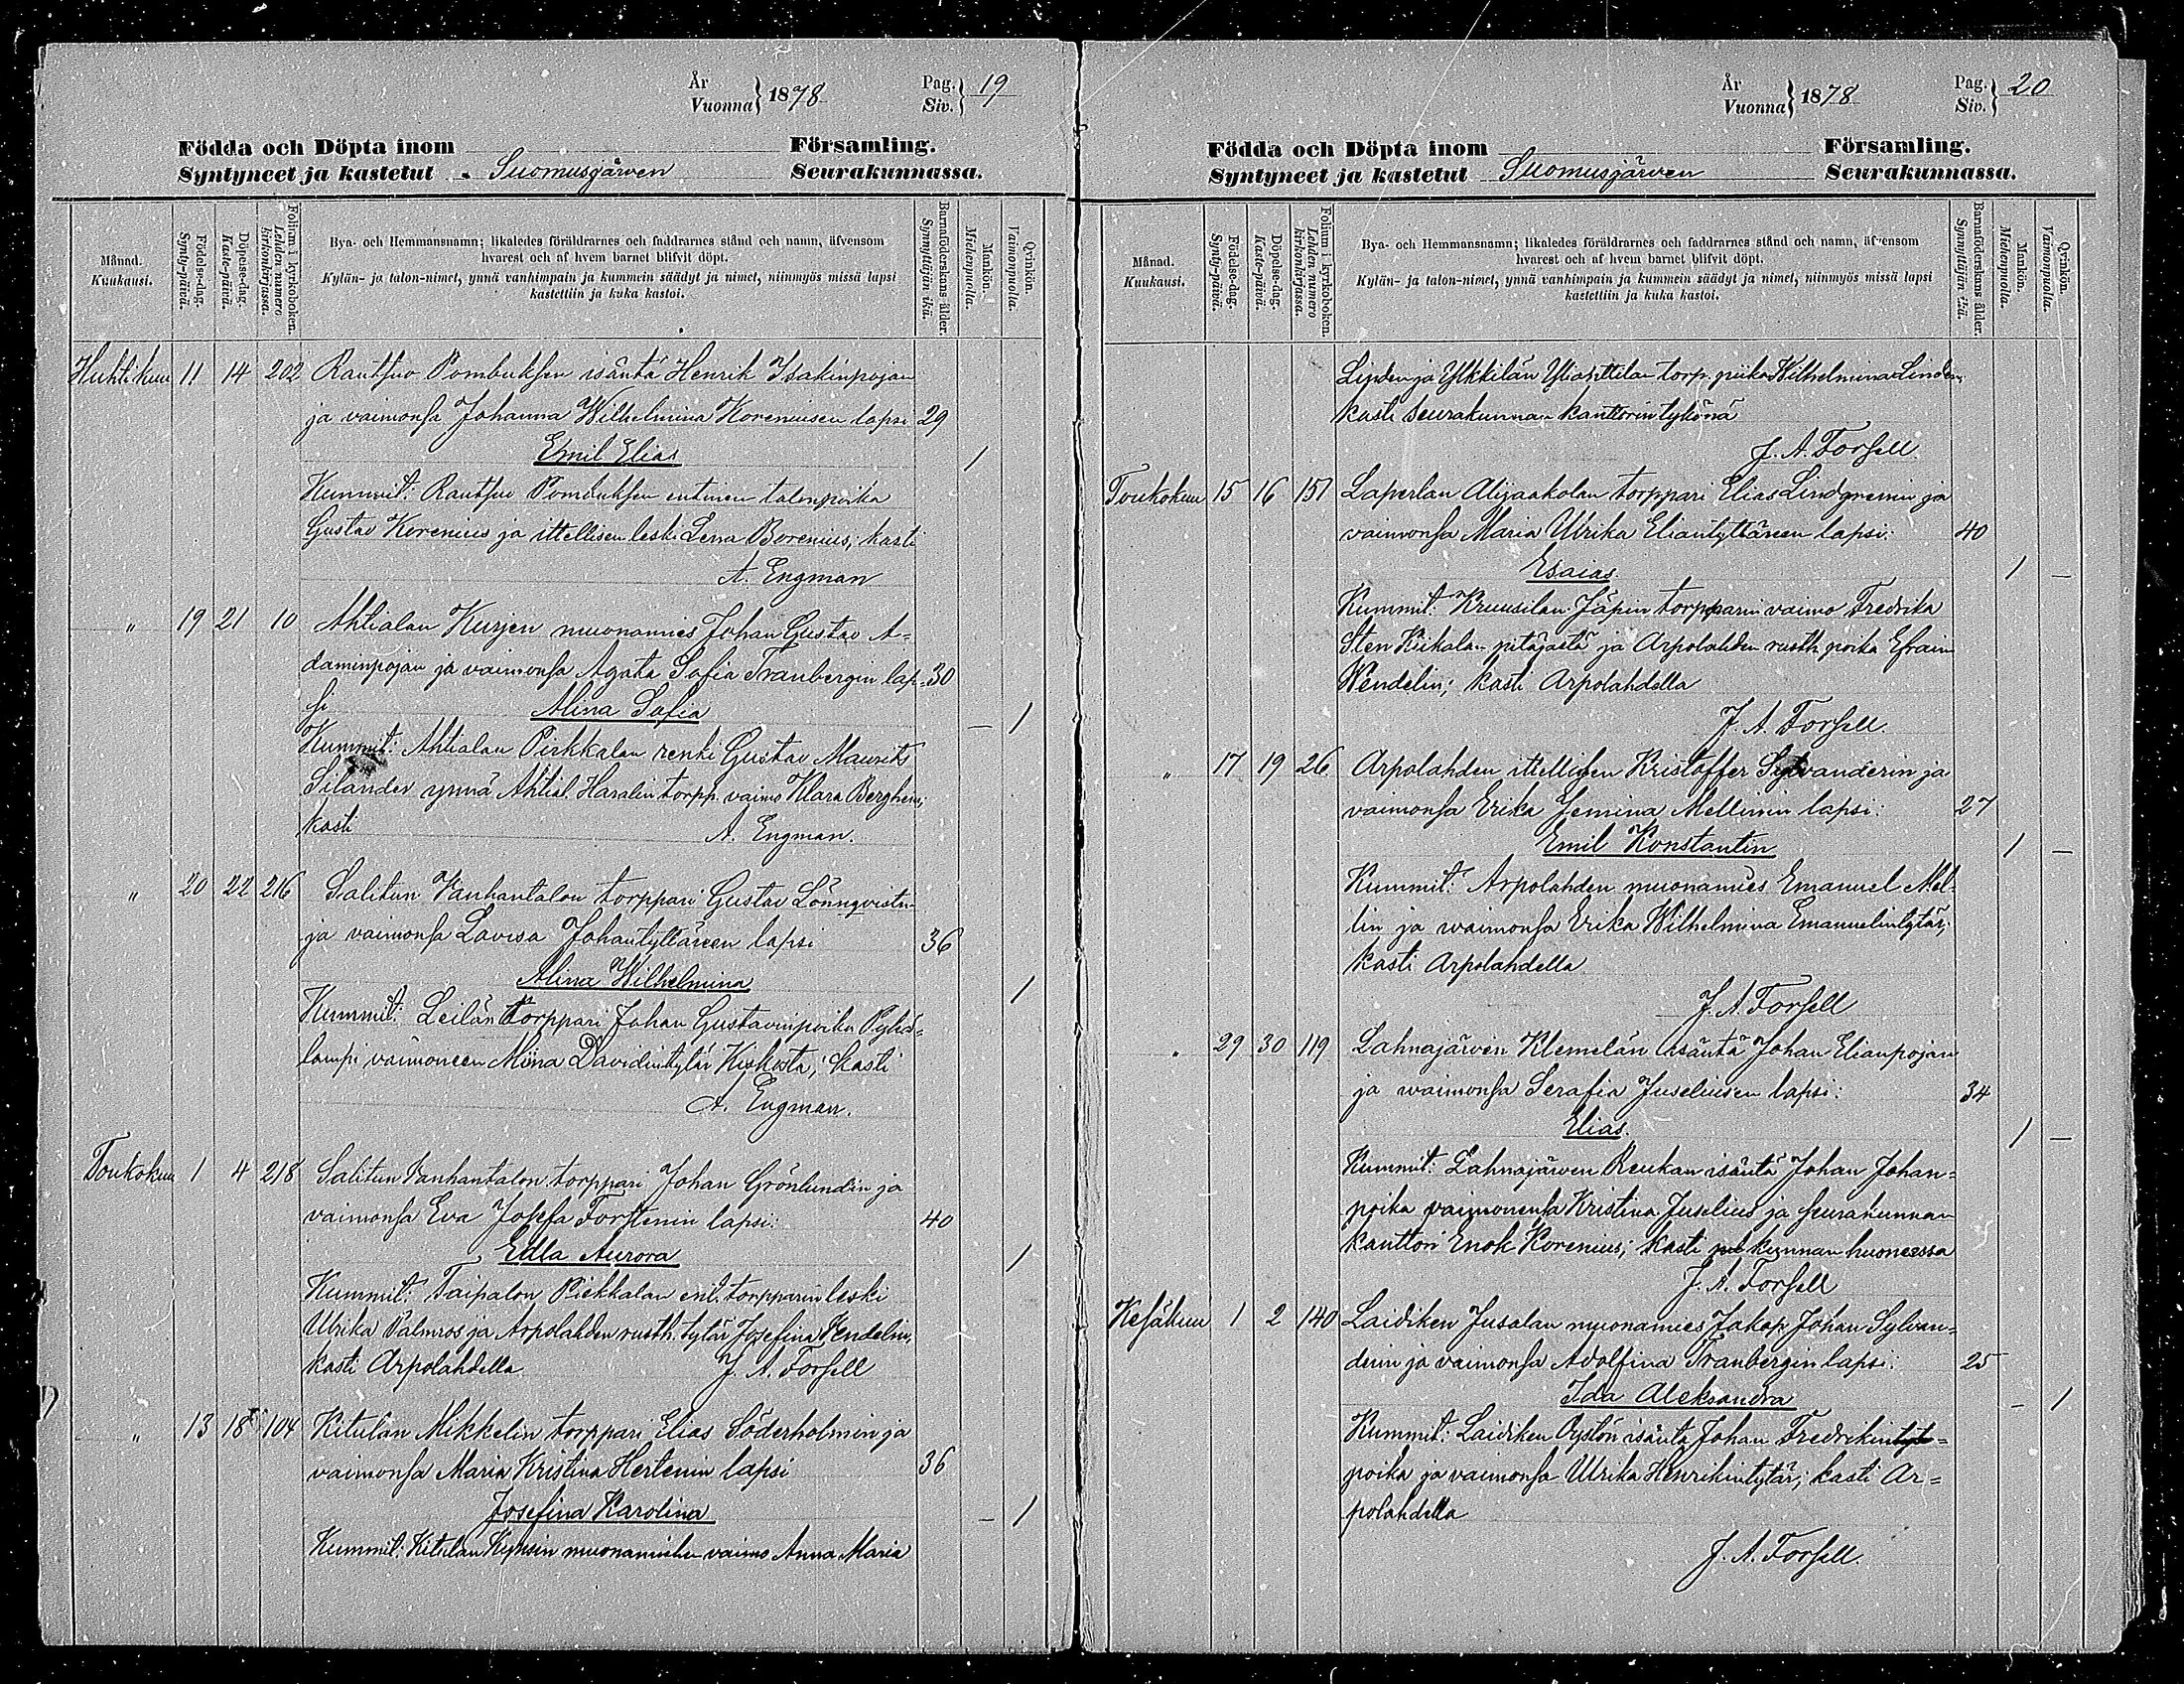 År
Vuonna } 1878
Pag.
Siv. } 19
Födda och Döpta inom Församling.
Syntyneet ja kastetut Suomusjärven Seurakunnassa.
Månad.
Kuukausi.
Födelse-dag.
Synty-päivä.
Döpelse-dag.
Kaste-päivä.
Folium i kyrkoboken.
Lehden numero kirkonkirjassa.
Bya- och Hemmansnamn; likaledes föräldrarnes och faddrarnes stånd och namn, äfvensom
hvarest och af hvem barnet blifvit döpt.
Kylän- ja talon-nimet, ynnä vanhimpain ja kummein säädyt ja nimet, niinmyös missä lapsi
kastettiin ja kuka kastoi.
Barnaföderskans ålder.
Synnyttäjän ikä.
Mankön.
Miehenpuolia.
Qvinkön.
Vaimonpuolia.
Huhtikuu 11 14 202 Rautsuo Pombuksen isäntä Henrik Isakinpojan
ja vaimonsa Johanna Wilhelmina Koreniusen lapsi 29
Emil Elias 1
Kummit: Rautsuo Pombuksen entinen talonpoika
Gustav Korenius ja ittellisen leski Lena Borenius; kasti
A. Engman
" 19 21 10 Ahtialan Kurjen muonamies Johan Gustav A-
daminpojan ja vaimonsa Agata Sofia Tranbergin lap- 30
si Alina Sofia — 1
Kummit: Ahtialan Pirkkalan renki Gustav Maurits
Silander ynnä Ahtial. Haralin torpp. vaimo Klara Berghem;
kasti A. Engman.
" 20 22 216 Salitun Vanhantalon torppari Gustav Lönnqvistin
ja vaimonsa Lavisa Johantyttären lapsi 36
Alina Wilhelmina 1
Kummit: Leilän torppari Johan Gustavinpoika Pyhä-
lampi vaimoneen Miina Davidintytär Kiskosta; kasti
A. Engman.
Toukokuu 1 4 218 Salitun Vanhantalon torppari Johan Grönlundin ja
vaimonsa Eva Josefa Forstenin lapsi: 40
Edla Aurora 1
Kummit: Taipalon Pirkkalan ent. torpparin leski
Ulrika Palmros ja Arpolahden rusth. tytär Josefina Wendelin,
kasti Arpolahdella J. A. Forsell
" 13 18 104 Kitulan Mikkelin torppari Elias Söderholmin ja
vaimonsa Maria Kristina Hertenin lapsi 36
Josefina Karolina — 1
Kummit: Kitulan muonamiehen vaimo Anna Maria
År
Vuonna } 1878
Pag.
Siv. } 20
Födda och Döpta inom Församling.
Syntyneet ja kastetut Suomusjärven Seurakunnassa.
Månad.
Kuukausi.
Födelse-dag.
Synty-päivä.
Döpelse-dag.
Kaste-päivä.
Folium i kyrkoboken.
Lehden numero kirkonkirjassa.
Bya- och Hemmansnamn; likaledes föräldrarnes och faddrarnes stånd och namn, äfvensom
hvarest och af hvem barnet blifvit döpt.
Kylän- ja talon-nimet, ynnä vanhimpain ja kummein säädyt ja nimet, niinmyös missä lapsi
kastettiin ja kuka kastoi.
Barnaföderskans ålder.
Synnyttäjän ikä.
Mankön.
Miehenpuolia.
Qvinkön.
Vaimonpuolia.
Linden ja Ylikkilän torp. piika Wilhelmina Linden,
kasti seurakunnan kanttorin tykönä
J. A. Forsell.
Toukokuu 15 16 151 Laperlan Alijaakolan torppari Elias Lindgrenin ja
vaimonsa Maria Ulrika Eliantyttären lapsi: 40
Esaias. 1 —
Kummit: Kruusilan Jäpin torpparin vaimo Fredrika
Sten Kiikalan pitäjästä ja Arpolahden rusth. poika Efraim
Wendelin; kasti Arpolahdella
J. A. Forsell.
" 17 19 26 Arpolahden ittellisen Kristoffer Sylvanderin ja
vaimonsa Erika Jemina Mellinin lapsi: 27
Emil Konstantin 1 —
Kummit: Arpolahden muonamies Emanuel Mel-
lin ja waimonsa Erika Wilhelmina Emanuelintytär;
kasti Arpolahdella
J. A. Forsell
" 29 30 119 Lahnajärven Klemelän isäntä Johan Elianpojan
ja waimonsa Serafia Juseliusen lapsi: 34
Elias. 1 —
Kummit: Lahnajärven Reukan isäntä Johan Johan-
poika vaimonensa Kristina Juselius ja seurakunnan
kanttori Enok Korenius; kasti kunnan huoneessa
J. A. Forsell
Kesäkuu 1 2 140 Laidiken Jusalan muonamies Jakop Johan Sylvan-
derin ja vaimonsa Adolfina Tranbergin lapsi: 25
Ida Aleksandra — 1
Kummit: Laidiken Öystön isäntä Johan Fredrikin-
poika ja vaimonsa Ulrika Henrikintytär; kasti Ar-
polahdella
J. A. Forsell.